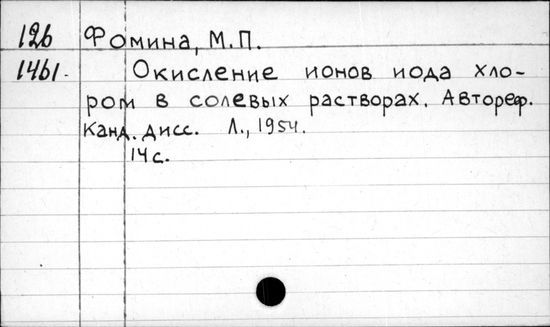 126 Фомина, М.П.
1461. Окисление ионов иода хло-
ром в солевых растворах. Автореф.
Канд. дисс. Л., 1954.
14 с.